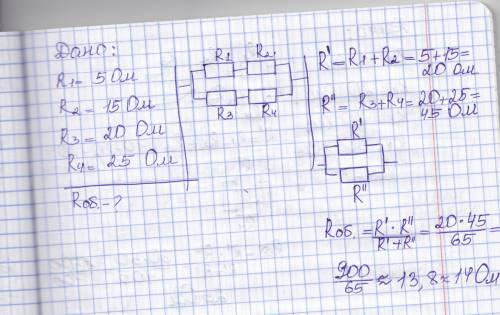 Дано:
R1 = 5 Ом
R2 = 15 Ом
R3 = 20 Ом
R4 = 25 Ом
Rоб. - ?
R1 R2
R3 R4
R' = R1 + R2 = 5+15=
20 Ом
R" = R3+R4 = 20+25=
45 Ом
R'
R"
Rоб. = R' · R" / R' + R" = 20·45 / 65 =
900 / 65 ≈ 13,8 ≈ 14 Ом